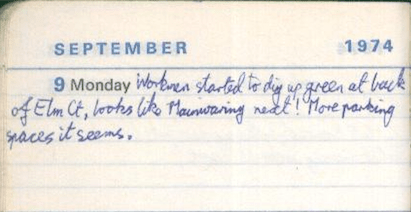 SEPTEMBER 1974
9 Monday Workmen started to dig up green at back
of Elm Ct, looks like Mainwaring next! More parking
spaces it seems.